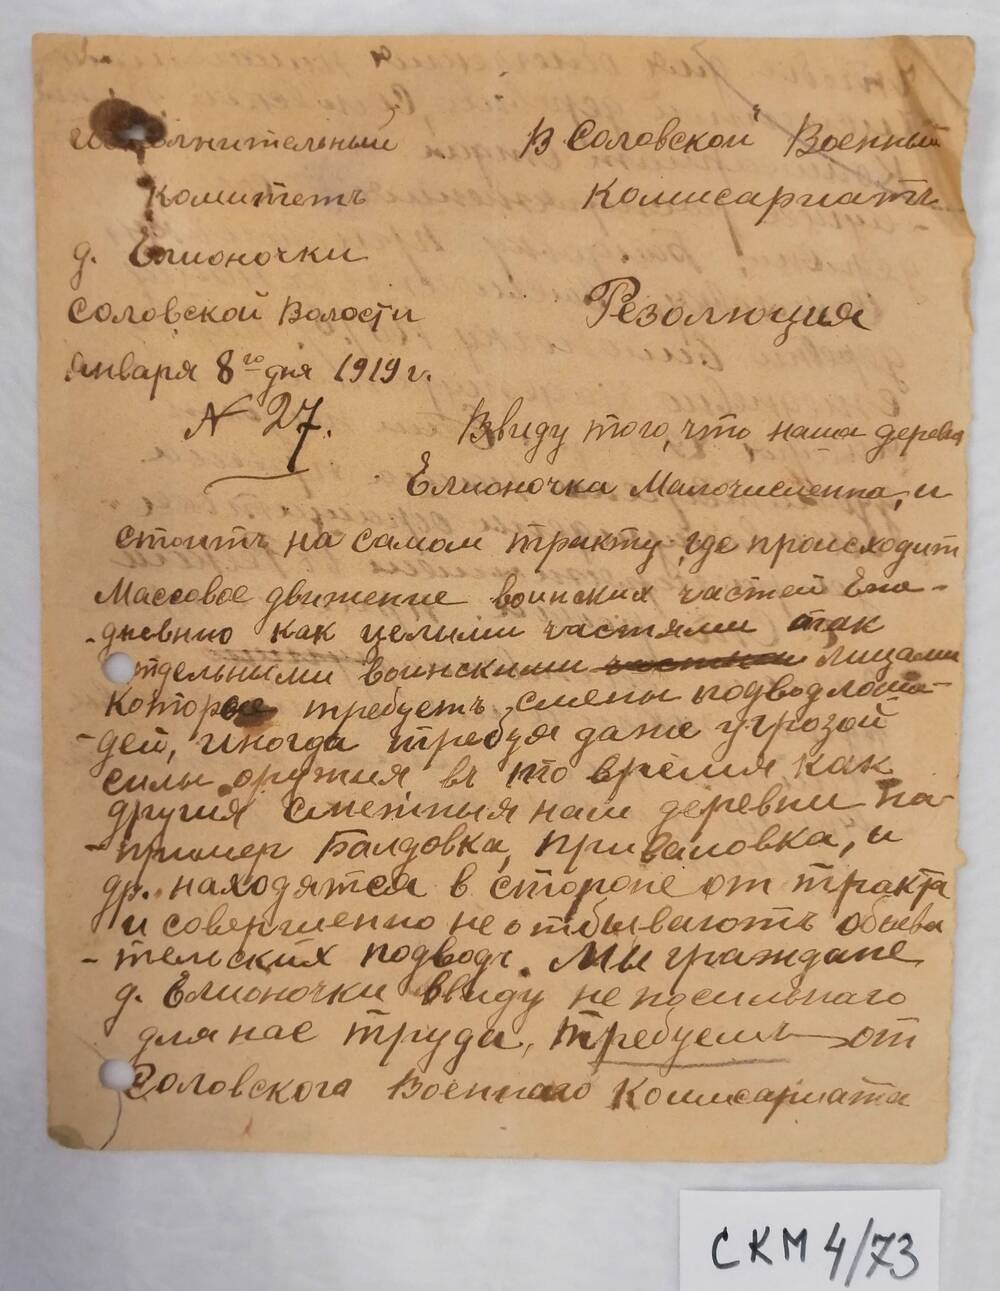 Исполнительный
Комитетъ
д. Елионочки
Соловской Волости
Января 8го дня 1919 г.
№ 27.
В Соловской Военный
Комисариатъ
Резолюция
Ввиду того, что наша деревня
Елионочка Малочисленна, и
стоитъ на самом тракту, где происходит
Массовое движение воинских частей Еже-
-дневно как целыми частями так
отдельными воинскими лицами
Которое требуетъ смены подвод лоша-
-дей, иногда требуя даже угрозой
силы оружия въ то время как
другия смежныя нам деревни на-
-пример Балдовка, Приваловка, и
др. находятся в стороне от тракта
и совершенно не отбываютъ обыва
-тельских подводъ. Мы граждане
д. Елионочки ввиду непосильнаго
для нас труда, требуемъ от
Соловскога Военнаго Комисариата
СКМ 4/73